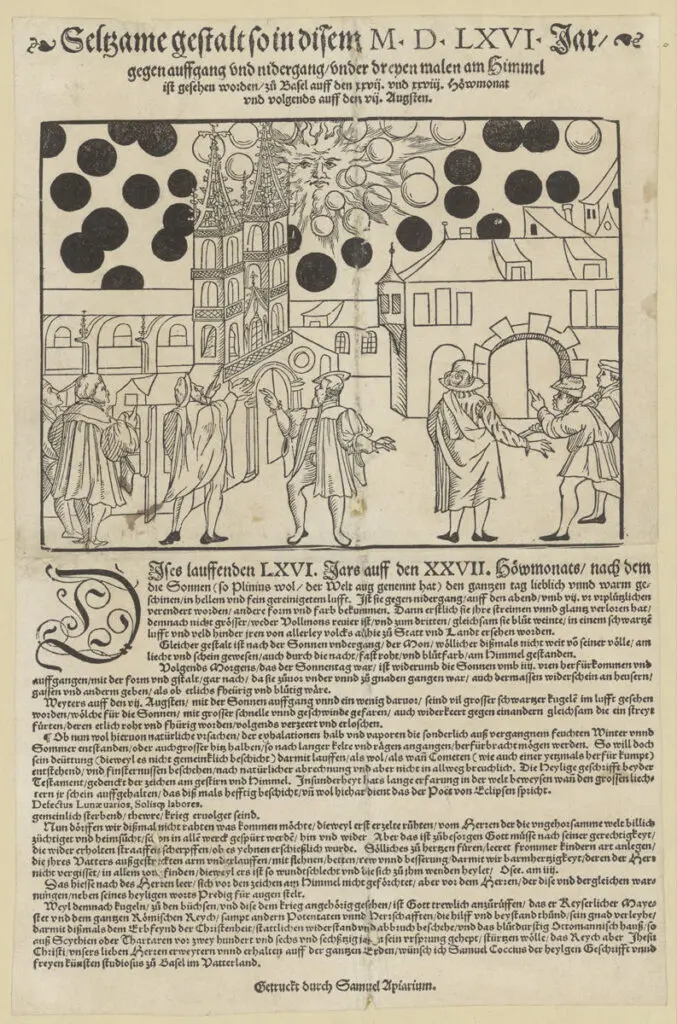 Seltzame gestalt so in disem M. D. LXVI. Jar/
gegen auffgang vnd nidergang/vnder dreyen malen am Himmel
ist gesehen worden/zů Basel auff den xxvij. vnd xxviij. Höwmonat
vnd volgends auff den vij. Augsten.
DIses lauffenden LXVI. Jars auff den XXVII. Höwmonats/ nach dem
die Sonnen (so Plinius wol/ der Welt aug genennt hat) den gantzen tag lieblich vnnd warm ge-
schinen/in hellem vnd fein gereinigetem lufft. Ist sie gegen nidergang/auff den abend/vmb vij. vr vrplützlichen
verendert worden/ andere form vnd farb bekummen. Dann erstlich sie ihre streimen vnnd glantz verloren hat/
demnach nicht grösser/weder Vollmons ist/vnd zum dritten/ gleichsam sie blůt weinte/ in einem schwartzē
lufft vnd veld hinder jren von allerley volcks zů Statt vnd Landt ersehen worden.
Gleicher gestalt ist nach der Sonnen vndergang/ der Mon/ wöllicher dißmals nicht weit vō seiner völle/ am
liecht vnd schein gewesen/auch durch die nacht/fast roht/vnd blůtfarb/am Himmel gestanden.
Volgends Morgens/das der Sonnentag war/ ist widerumb die Sonnen vmb iiij. vren herfür kommen vnd
auffgangen/mit der form vnd gstalt/gar nach/ da sie zůuor vnder vnnd zů gnaden gangen war/ auch dermassen widerschein an heusern/
gassen vnd anderm geben/als ob etlichs fheürig vnd blůtig wäre.
Weyters auff den vij. Augsten/ mit der Sonnen auffgang vnnd ein wenig daruor/ seind vil grosser schwartzer kugelē im lufft gesehen
worden/wölche für die Sonnen/ mit grosser schnelle vnnd geschwinde gefaren/ auch widerkeert gegen einandern gleichsam die ein streyt
fůrten/deren etlich roht vnd fhürig worden/volgends verzert vnd erloschen.
¶ Ob nun wol hieruon natürliche vrsachen/ der exhalationen halb vnd vaporen die sonderlich auß vergangnem feuchten Winter vnnd
Sommer entstanden/oder auch grosser hitz halben/so nach langer kelte vnd rägen angangen/herfür bracht mögen werden. So will doch
sein deüttung (dieweyl es nicht gemeinklich beschicht) darmit lauffen/als wol/als wañ Cometen (wie auch einer yetzmals herfür kumpt)
entstehend/vnd finsternussen beschehen/nach natürlicher abrechnung vnd aber nicht in allweg breuchlich. Die Heylige geschrifft beyder
Testament/gedenckt der zeichen am gestirn vnd Himmel. Insunderheyt hats lange erfarung in der welt beweysen wañ den grossen liech-
tern jr schein auffgehalten/ das diß mals hefftig beschicht/vñ wol hiehar dient das der Poet von Eclipsen spricht.
Defectus Lunæ uarios, Solisq; labores.
gemeinlich sterbend/thewre/ krieg eruolget seind.
Nun dörffen wir dißmal nicht rahten was kommen möchte/dieweyl erst erzelte růhten/vom Herren der die vngehorsamme welt billich
züchtiget vnd heimsücht/ vñ in allē werck gespürt werdē/ hin vnd wider. Aber das ist zůbesorgen Gott müsse nach seiner gerechtigkeyt/
die wider erholten straaffen scherpffen/ob es yehnen erschießlich wurde. Sölliches zů hertzen füren/leeret frommer kindern art anlegen/
die jhres Vatters außgestreckten arm vnd lauffen/mit flehnen/betten/rew vnnd besserung/darmit wir barmhertzigkeyt/deren der Herr
nicht vergisset/ in allem zorn finden/dieweyl er s ist so wundtschlecht vnd die sich zů jhm wenden heylet/ Osee. am iiij.
Das hiesse nach des Herren leer/sich vor den zeichen am Himmel nicht geförchtet/ aber vor dem Herren/der dise vnd dergleichen war-
nungen/neben seines heyligen worts Predig für augen stelt.
Weyl demnach kugeln/ zů den büchsen/vnd dise dem krieg angehörig gesehen/ist Gott trewlich anzůrüffen/ das er Keyserlicher Mayes-
stet vnd dem gantzen Römischen Reych/ sampt andern Potentaten vnnd Herrschafften/die hilff vnd beystand thůnd/ sein gnad verleyhe/
darmit dißmals dem Erbfeynd der Christenheit/stattlichen widerstand vnd abbruch beschehe/vnd das blůtdurstig Ottomannisch hauß/so
auß Scythien oder Thartaren vor zwey hundert vnd sechs vnd sechtzig jaren sein vrsprung gehept/ stürtzen wölle/das Reych aber Jhesu
Christi/vnsers lieben Herren erweytern vnnd erhalten auff der gantzen Erden/wünsch ich Samuel Coccius der heylgen Geschrifft vnnd
freyen künsten studiosus zů Basel im Vatterland.
Getruckt durch Samuel Apiarium.